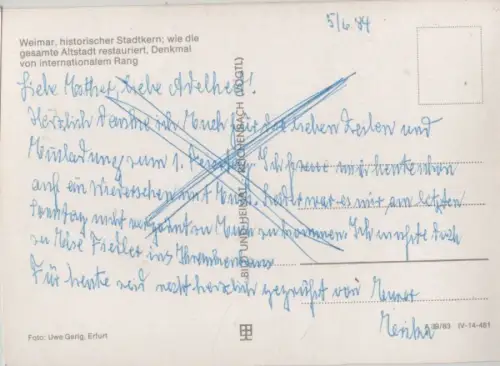 5/6.84
Weimar, historischer Stadtkern; wie die
gesamte Altstadt restauriert, Denkmal
von internationalem Rang
Liebe liebe Adelheid!
Herzlich danke ich Euch für die lieben Zeilen und
Einladung zum 1. Ich freue mich heute schon
auf ein Wiedersehen mit Euch. war es mir am letzten
Sonntag nicht zu Euch zu kommen. Ich mußte
zu ins
Für heute seid recht herzlich gegrüßt von Eurer
BILD UND HEIMAT REICHENBACH (VOGTL)
Foto: Uwe Gerig, Erfurt
IV-14-481